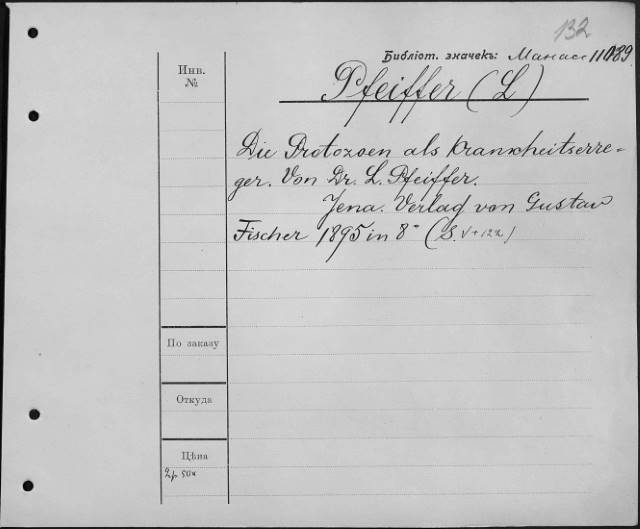 132
Библіот. значекъ: Манасс 11089
Инв.
№
Pfeiffer (L)
Die Protozoen als Krankheitserre-
ger. Von Dr. L. Pfeiffer.
Jena. Verlag von Gustav
Fischer 1895 in 8° (S. V+122)
По заказу
Откуда
Цѣна
2р 50к